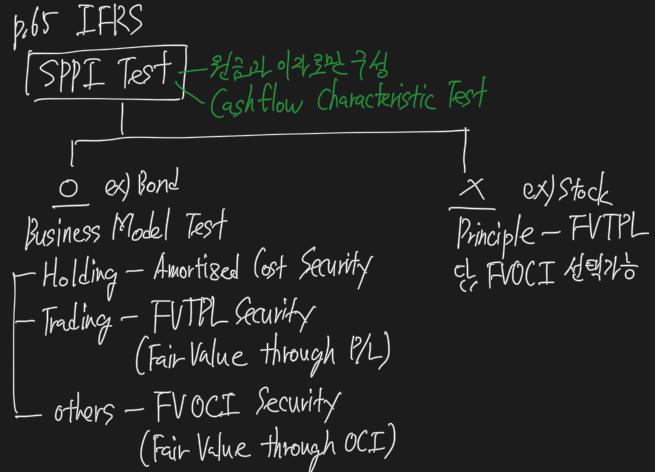 p.65 IFRS
SPPI Test
원금과 이자로만 구성
Cashflow Characteristic Test
O ex) Bond
Business Model Test
Holding - Amortized Cost Security
Trading - FVTPL Security
(Fair Value through P/L)
others - FVOCI Security
(Fair Value through OCI)
X ex) Stock
Principle - FVTPL
단, FVOCI 선택가능